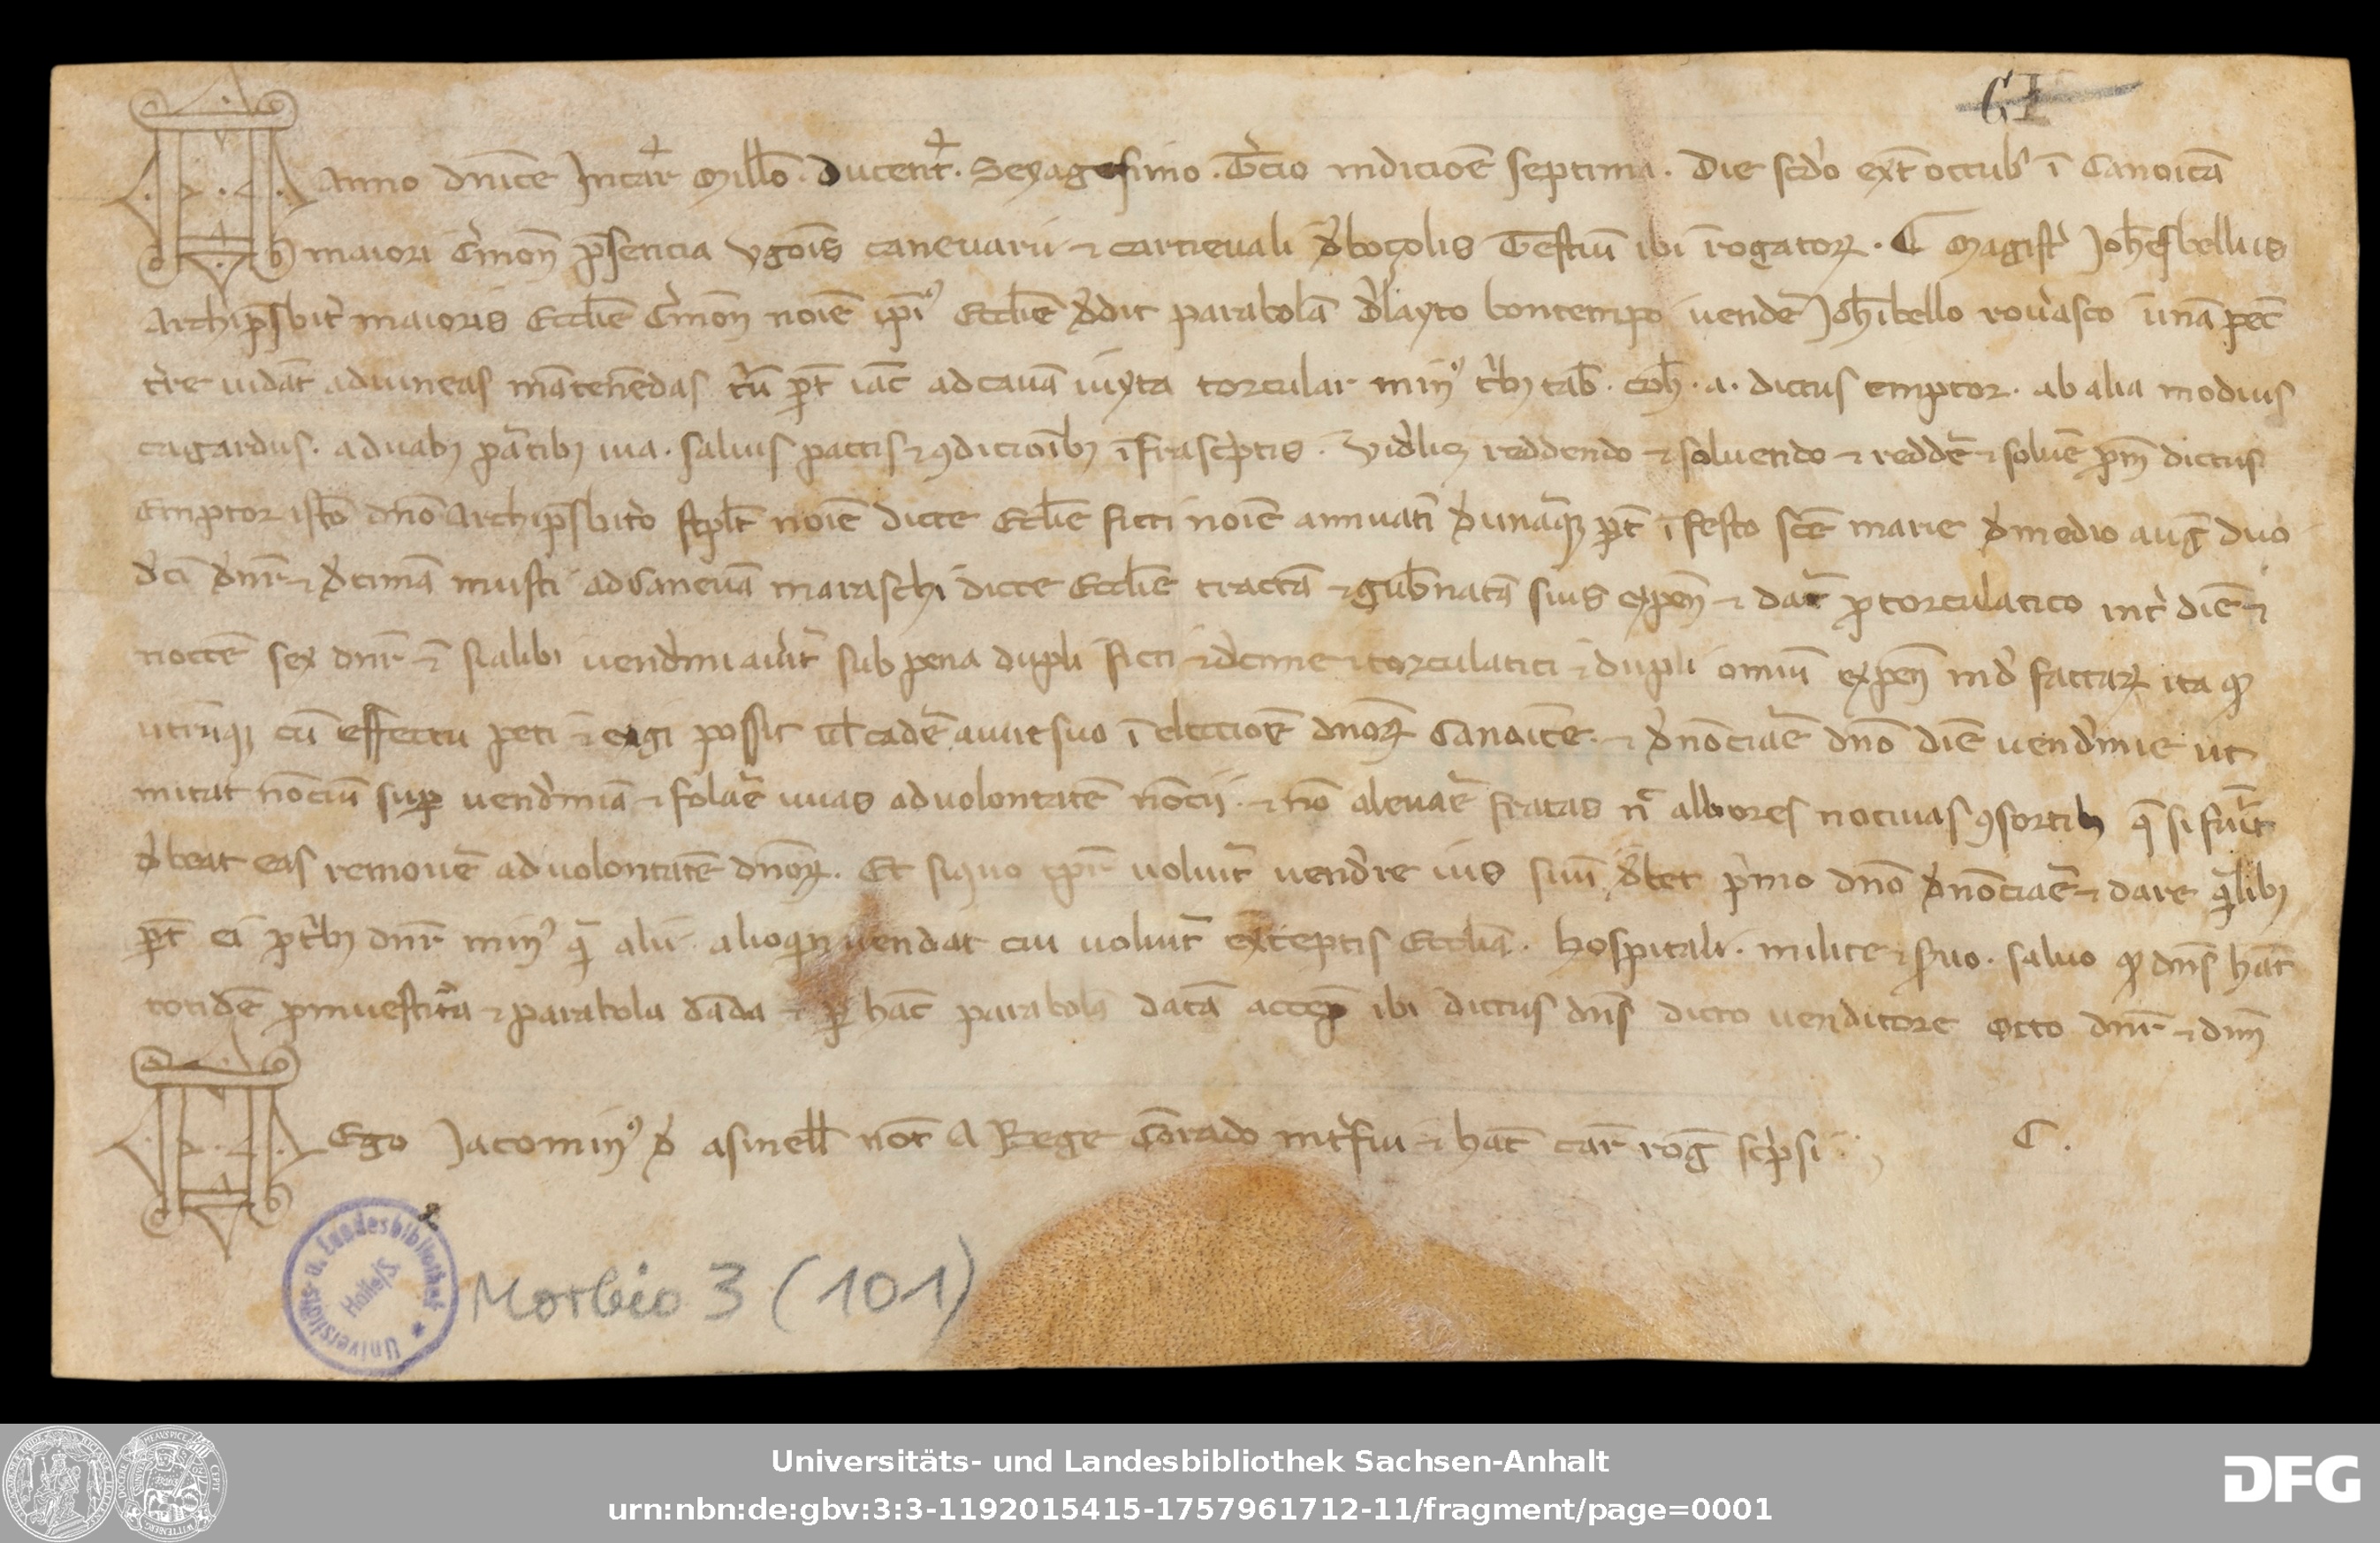 61
Anno dn̄ice Incar̄ Mill̄o. ducent̄. Sexagesimo. T̄cio indicioē septima. Die scd̄o exēt octub̄ ī Canoica
maiori Crͥmon̄ p̄sencia Vgoīs caneuarii ⁊ carneuali đ boçolis Testiū ibi rogatoꝝ. C Magist̄ Joh̄esbellus
Archip̄sbiť maioris Eccl̄ie Cr̓mon̄ noīe ip̄i᾽ Eccl̄ie đdit parabolā đ layto bontempo uendē Joh̄ibello rou̓asco unā pec̄
t̓re uidat̄ ad uineas mātenēdas t̓ū ꝑt̄ iac̄ ad cauā iuxta torcular min᾽ tͥbꝫ tab̄. coh̄. a. dictus emptor. ab alia modius
cagardus. a duabꝫ pātibꝫ uia. saluis pactis ⁊ ꝯdicioībꝫ īfrascͥptis. Vid̓licꝫ reddendo ⁊ soluendo ⁊ reddē ⁊ soluē ꝓm̄ dictus
Emptor isto dn̄o Archip̄sbit̓o stp̄lt̄ noīe dicte Ecl̄ie ficti noīe annuatī đ unaq̄qꝫ ꝑt̄ ī festo scē marie đ medio auḡ duo
đcī đnr̄ ⁊ đcimā musti ad Caneuā maraschi dicte Eccl̄ie tractā ⁊ gub̄natā suis expen̄ ⁊ dar̄ ꝓ torculatico int̓ diē ⁊
noctē sex dnr̄ ⁊ ē si alibi uend̓miau̓it̄ sub pena dupli ficti ⁊ đcime ⁊ torculatici ⁊ dupli omiū expen̄ ind̓ factaꝝ ita ꝙ
utrūqꝫ cū effectu peti ⁊ exigi possit ul̄ cadē a iure suo ī eleccioē dn̄oꝝ Canoice. ⁊ đnōciaē dn̄o diē uend̓mie ut
mitat nōciū suꝑ uend̓miā ⁊ foluē uuas ad uolontatē nōcij. ⁊ nō aleuaē fratas n̄ albores nociuas ꝯsortibꝫ q̄ si fūit
đbeat eas remouē ad uolontatē dn̄oꝝ. Et si quo tpr̄ uoluit̄ uend̓re ius suū đbet pͥmo dn̄o đnōciaē ⁊ dare q̄libꝫ
ꝑt̄ ei ꝑ tͥbꝫ dnr̄ min᾽ q̄ alii. alioqͥn uendat cui uoluit̄ exceptis Eccl̄ia. hospitali. milite ⁊ s̓uo. saluo ꝙ dn̄s hāt
totidē ꝓ inuestit̄a ⁊ parabola dāda ⁊ ꝑ hāc parabolā datā accep̄ ibi dictus dn̄s dicto uenditore octo dnr̄ ⁊ dim̄
Ego Jacomin᾽ đ asinell̄ not̄ A Rege Corado int̓fui ⁊ hāc car̄ roḡ scͥpsi
C.
Universitäts- u. Landesbibliothek
Halle/S.
Morbio 3 (101)
Universitäts- und Landesbibliothek Sachsen-Anhalt
urn:nbn:de:gbv:3:3-1192015415-1757961712-11/fragment/page=0001
DFG